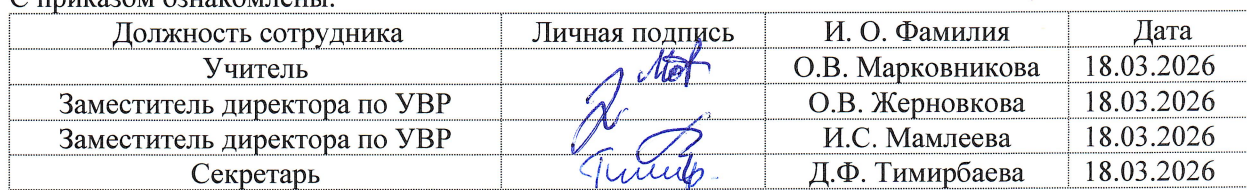 С приказом ознакомлены:
Должность сотрудника Личная подпись И. О. Фамилия Дата
Учитель О.В. Марковникова 18.03.2026
Заместитель директора по УВР О.В. Жерновкова 18.03.2026
Заместитель директора по УВР И.С. Мамлеева 18.03.2026
Секретарь Д.Ф. Тимирбаева 18.03.2026